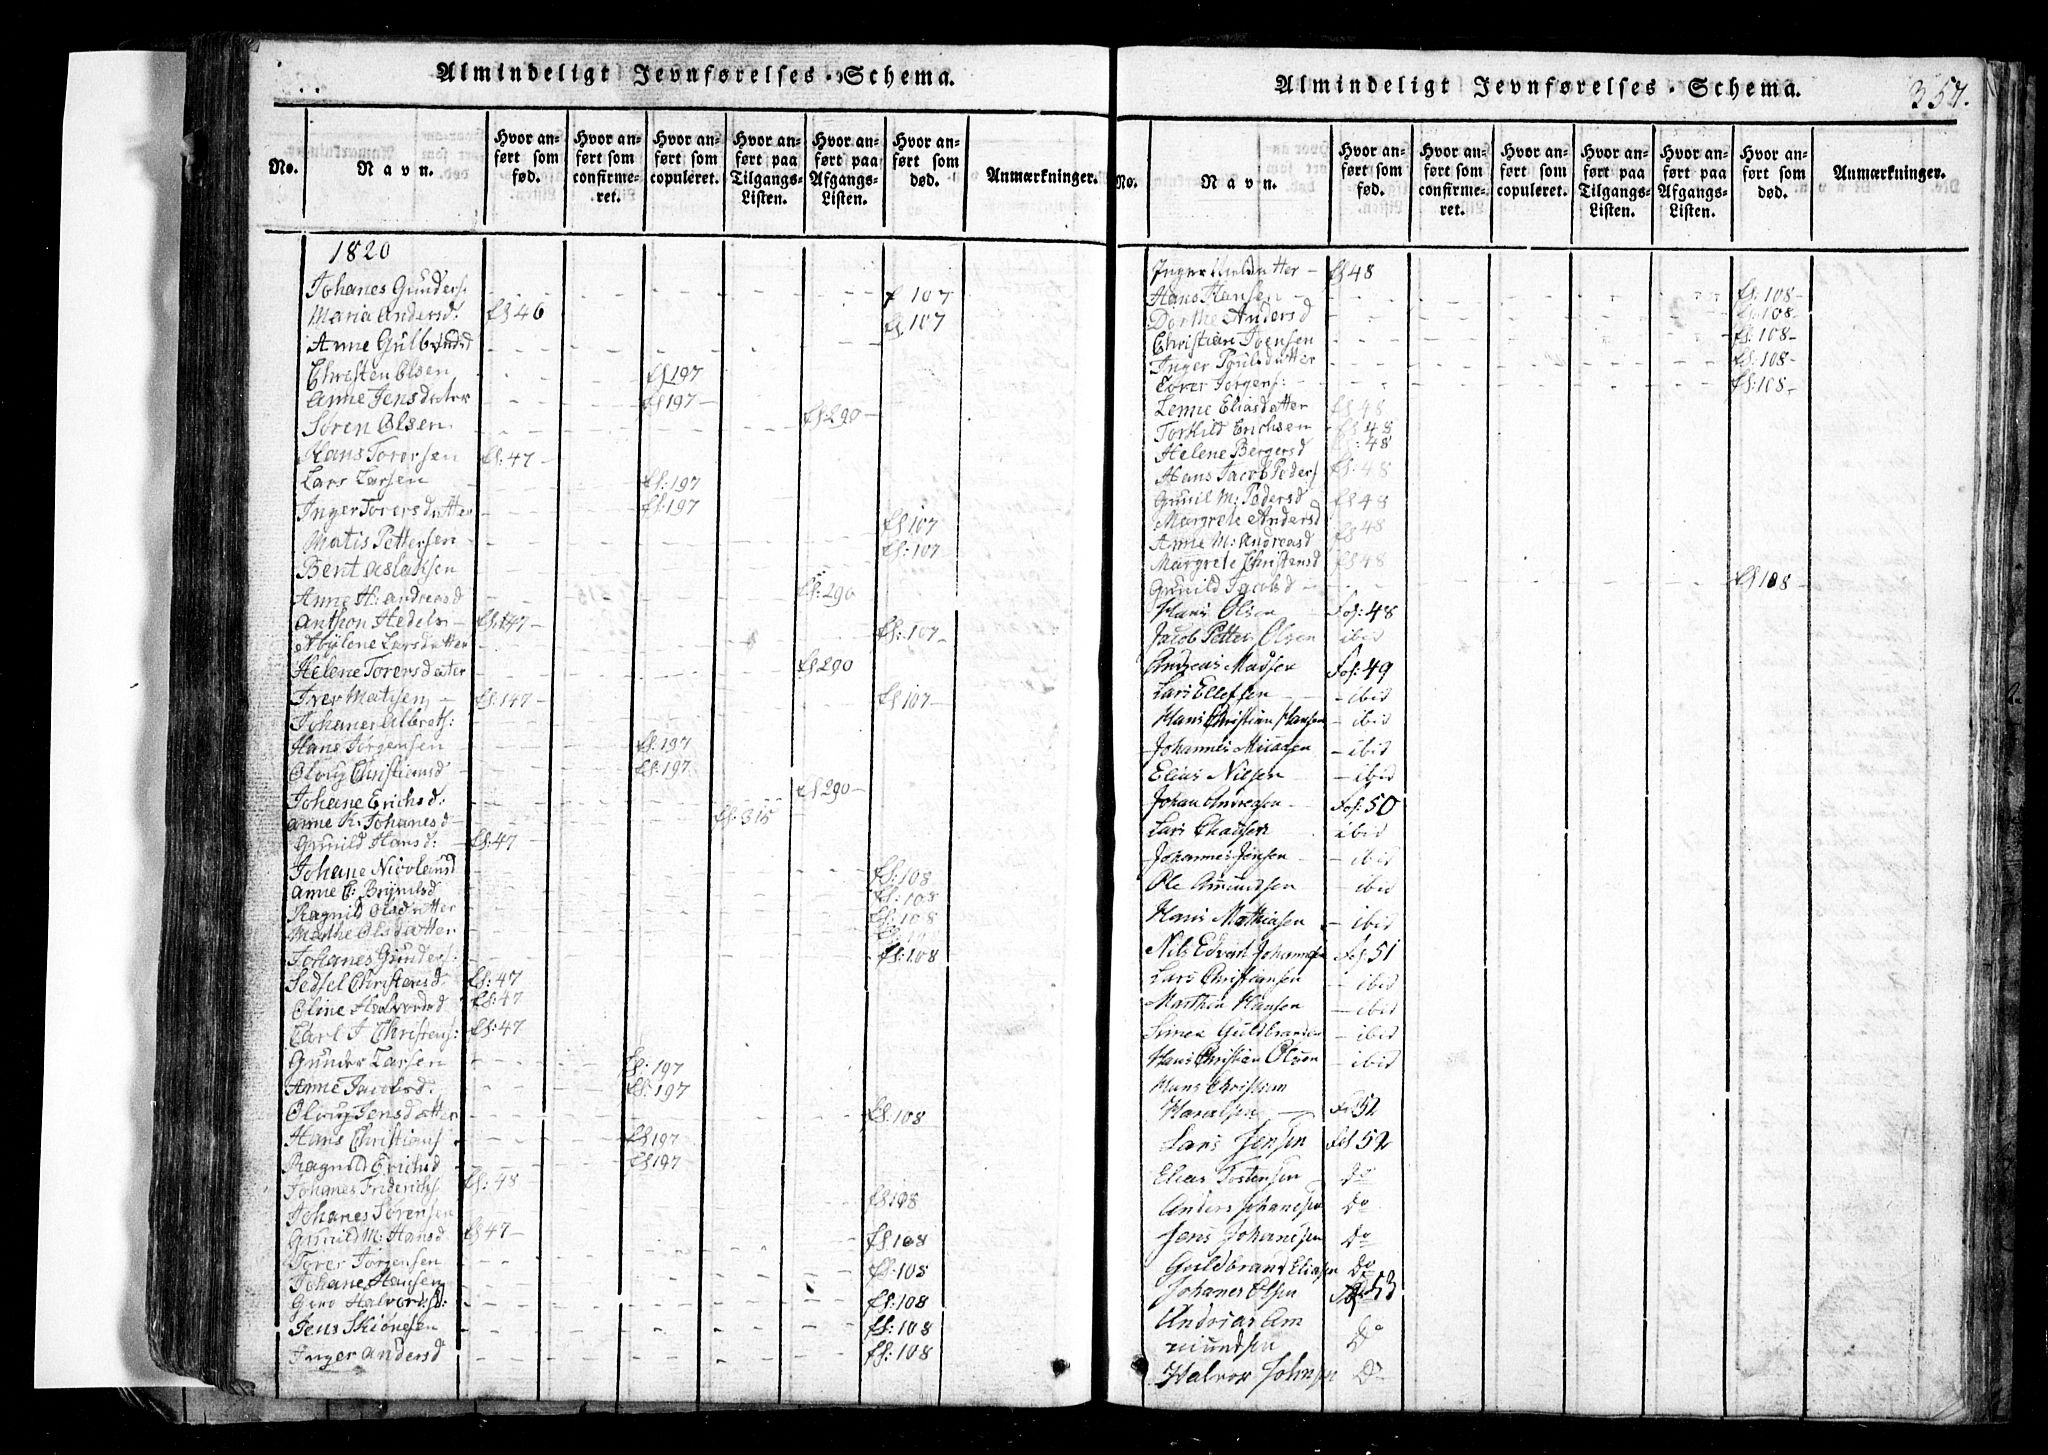 Almindeligt Jevnførelses-Schema.
No.
Navn.
Hvor anført som fød.
Hvor anført som confirmeret.
Hvor anført som copuleret.
Hvor anført paa Tilgangs-Listen.
Hvor anført paa Afgangs-Listen.
Hvor anført som død.
Anmærkninger.
1820
Johanes Gunders. 107
Maria Andersd. 46 107
Anne Gulbrandsd
Christen Olsen 197
Anne Jensdatter 197
Søren Olsen 290
Hans Torersen 47
Lars Larsen 197
Inger Torersdatter 197
Matis Pettersen 107
Bent Aslaksen 107
Anne H: Andreasd 290
Anthon Hedels 147
Abylene Larsdatter 107
Helene Torersdatter 290
Iver Matisen 147 107
Johanes Albrets:
Hans Jørgensen 197
Oloug Christiansd 197
Johane Erichsd: 290
Anne K. Johanesd 315
Gunild Hansd: 47
Johane Nicolaisd 108
Anne C: Brynilsd 108
Ragnild Olsdatter 108
Mathe Olsdatter
Johanes Gunders: 108
Sedsel Christensd. 47
Oline Halvordsd 47
Carl J Christens: 47
Gunder Larsen 197
Anne Jacobsd. 197
Oloug Jensdatter 108
Hans Christians 197
Ragnild Erichsd 197
Johanes Friderichs 48
Johanes Sørensen 108
Gunild M: Hansd 47 108
Torer Jorgensen 108
Johane Hansen
Halvordsd: 108
Jens 108
Inger Andersd 108
Almindeligt Jevnførelses-Schema.
357.
No.
Navn.
Hvor anført som fød.
Hvor anført som confirmeret.
Hvor anført som copuleret.
Hvor anført paa Tilgangs-Listen.
Hvor anført paa Afgangs-Listen.
Hvor anført som død.
Anmærkninger.
Inger 48
Hans Hansen 108
Dorthe Andersd 108
Christian Joensen 108
Inger Poulsdatter 108
Torer Jorgens: 108
Lenne Eliasdatter 48
Torkild Erichsen 48
Helene Bergersd 48
Hans Jacob Peders 48
Gunil M: Pedersd 48
Margrete Andersd 48
Anne M: Andreasd
Margrete Christensd 48
Gunild Jacobsd 108
Hans Olsen Fol: 48
Jacob Petter Olsen ibid
Andreas Madsen Fol: 49
Lars Ellefsen ibid
Hans Christian Hansen ibid
Johannes ibid
Elias Nilsen ibid
Johan Andreasen Fol: 50
Lars ibid
Johannes Jensen ibid
Ole Amundsen ibid
Hans Mathiasen ibid
Nils Edvart Johannesen Fol: 51
Lars Christiansen ibid
Marthin Hansen ibid
Simen Guldbrandsen ibid
Hans Christian Olsen ibid
Hans Christian
52
Lars Jensen Fol 52
Elias Tostensen Do
Anders Johanesen Do
Jens Johanesen Do
Guldbrand Eliasen Do
Johanes Olsen 53
Andreas Am
mundsen Do
Halvor Johnsen Do